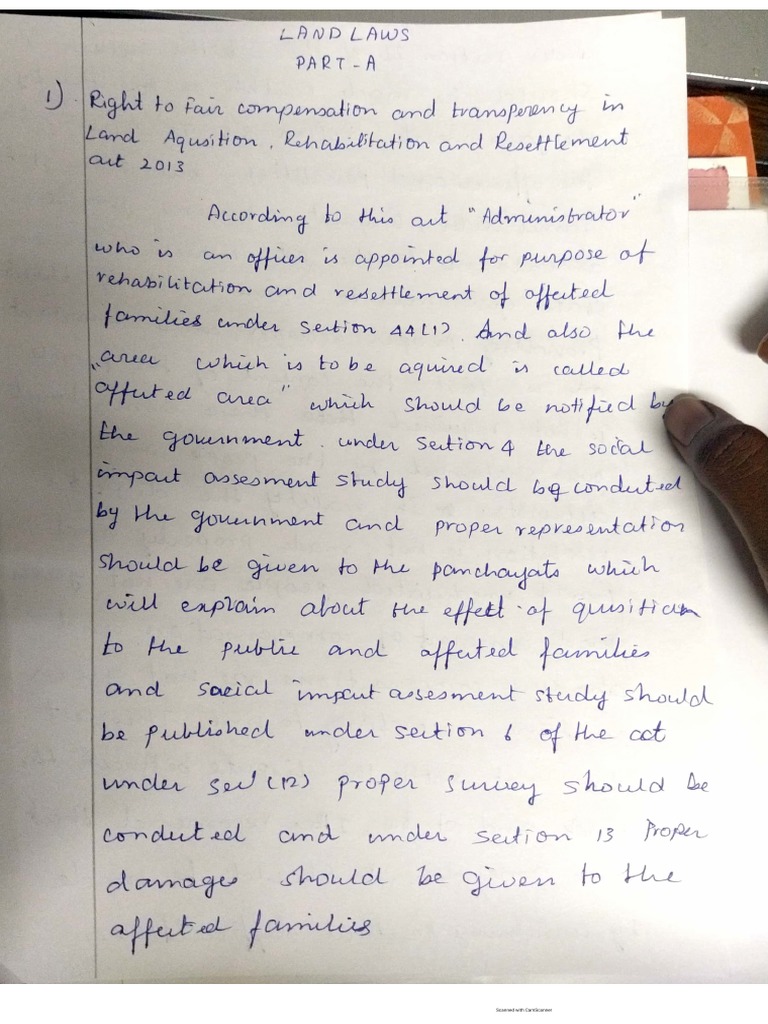 LAND LAWS
PART-A
1) Right to Fair compensation and transperency in
Land Aqusition, Rehabilitation and Resettlement
act 2013
According to this act "Administrator"
who is an officer is appointed for purpose of
rehabilitation and resettlement of affected
families under section 44(1). And also the
"area which is to be aquired is called
affected area" which should be notified by
the government. under section 4 the social
impact assesment study should be conducted
by the government and proper representation
should be given to the panchayats which
will explain about the effect of qusition
to the public and affected families
and social impact assesment study should
be published under section 6 of the act
under sec (12) proper survey should be
conducted and under section 13 Proper
damages should be given to the
affected families
Scanned with CamScanner